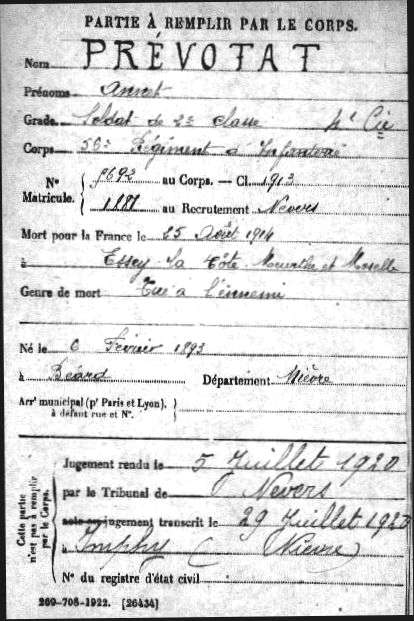 PARTIE À REMPLIR PAR LE CORPS.
Nom PRÉVOTAT
Prénoms Annet
Grade Soldat de 2e classe 4e Cie
Corps 56e Régiment d'Infanterie
N° Matricule. { 5692 au Corps. — Cl. 1913
1181 au Recrutement Nevers
Mort pour la France le 25 Août 1914
à Essey la Côte Meurthe et Moselle
Genre de mort Tué à l'ennemi
Né le 6 Février 1893
à Béard Département Nièvre
Arrt municipal (pr Paris et Lyon),
à défaut rue et N°.
Cette partie n'est pas à remplir par le Corps.
Jugement rendu le 5 Juillet 1920
par le Tribunal de Nevers
acte ou jugement transcrit le 29 Juillet 1920
à Imphy (Nièvre)
N° du registre d'état civil
269-708-1922. [26434]